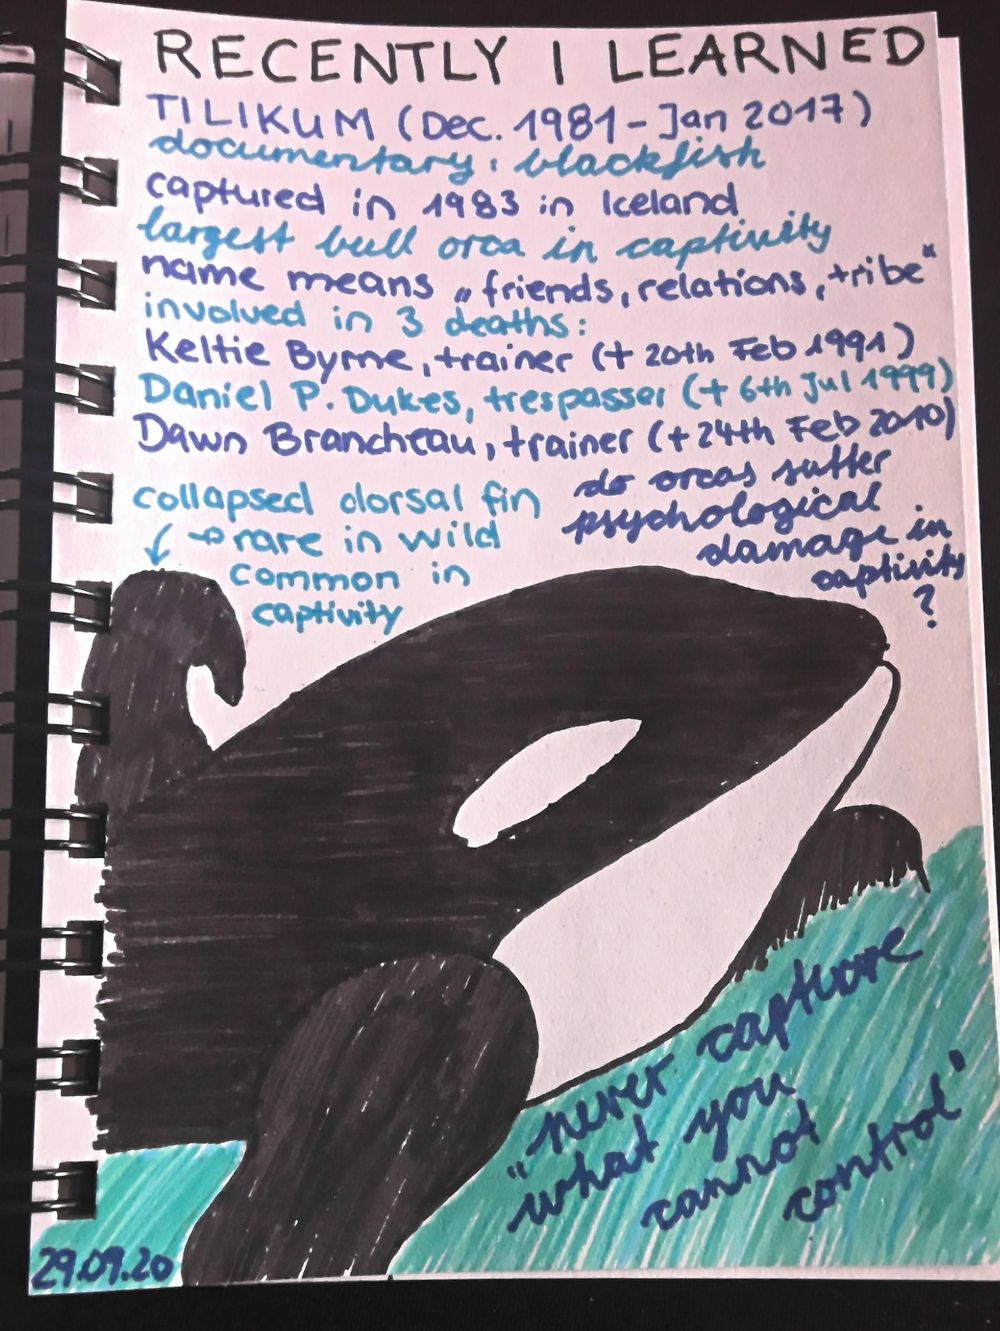 RECENTLY I LEARNED
TILIKUM (Dec. 1981 - Jan 2017)
documentary: blackfish
captured in 1983 in Iceland
largest bull orca in captivity
name means „friends, relations, tribe“
involved in 3 deaths:
Keltie Byrne, trainer († 20th Feb 1991)
Daniel P. Dukes, trespasser († 6th Jul 1999)
Dawn Brancheau, trainer († 24th Feb 2010)
collapsed dorsal fin
→ rare in wild
common in
captivity
do orcas suffer
psychological
damage in
captivity
?
„never capture
what you
cannot
control“
29.09.20